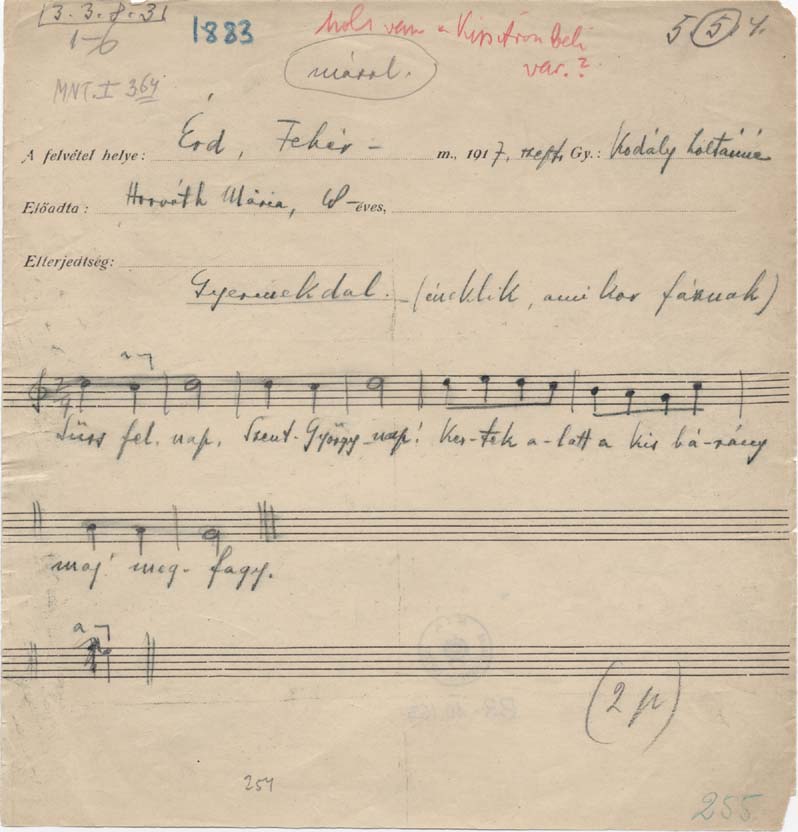 13. 3. 8. 31
1-6
1883
hol van a Kispitroubeli
var.?
5 5 4.
másol.
MNT. I 364
A felvétel helye: Érd, Fehér- m., 1917, szept. Gy.: Kodály Zoltánné
Előadta: Horváth Mária, éves,
Elterjedtség:
Gyermekdal. - (éneklik, amikor fáznak)
Süss fel, nap, Szent-György-nap! Ker-tek a-latt a kis bá-rány
maj' meg-fagy.
a
(2 p)
254
255